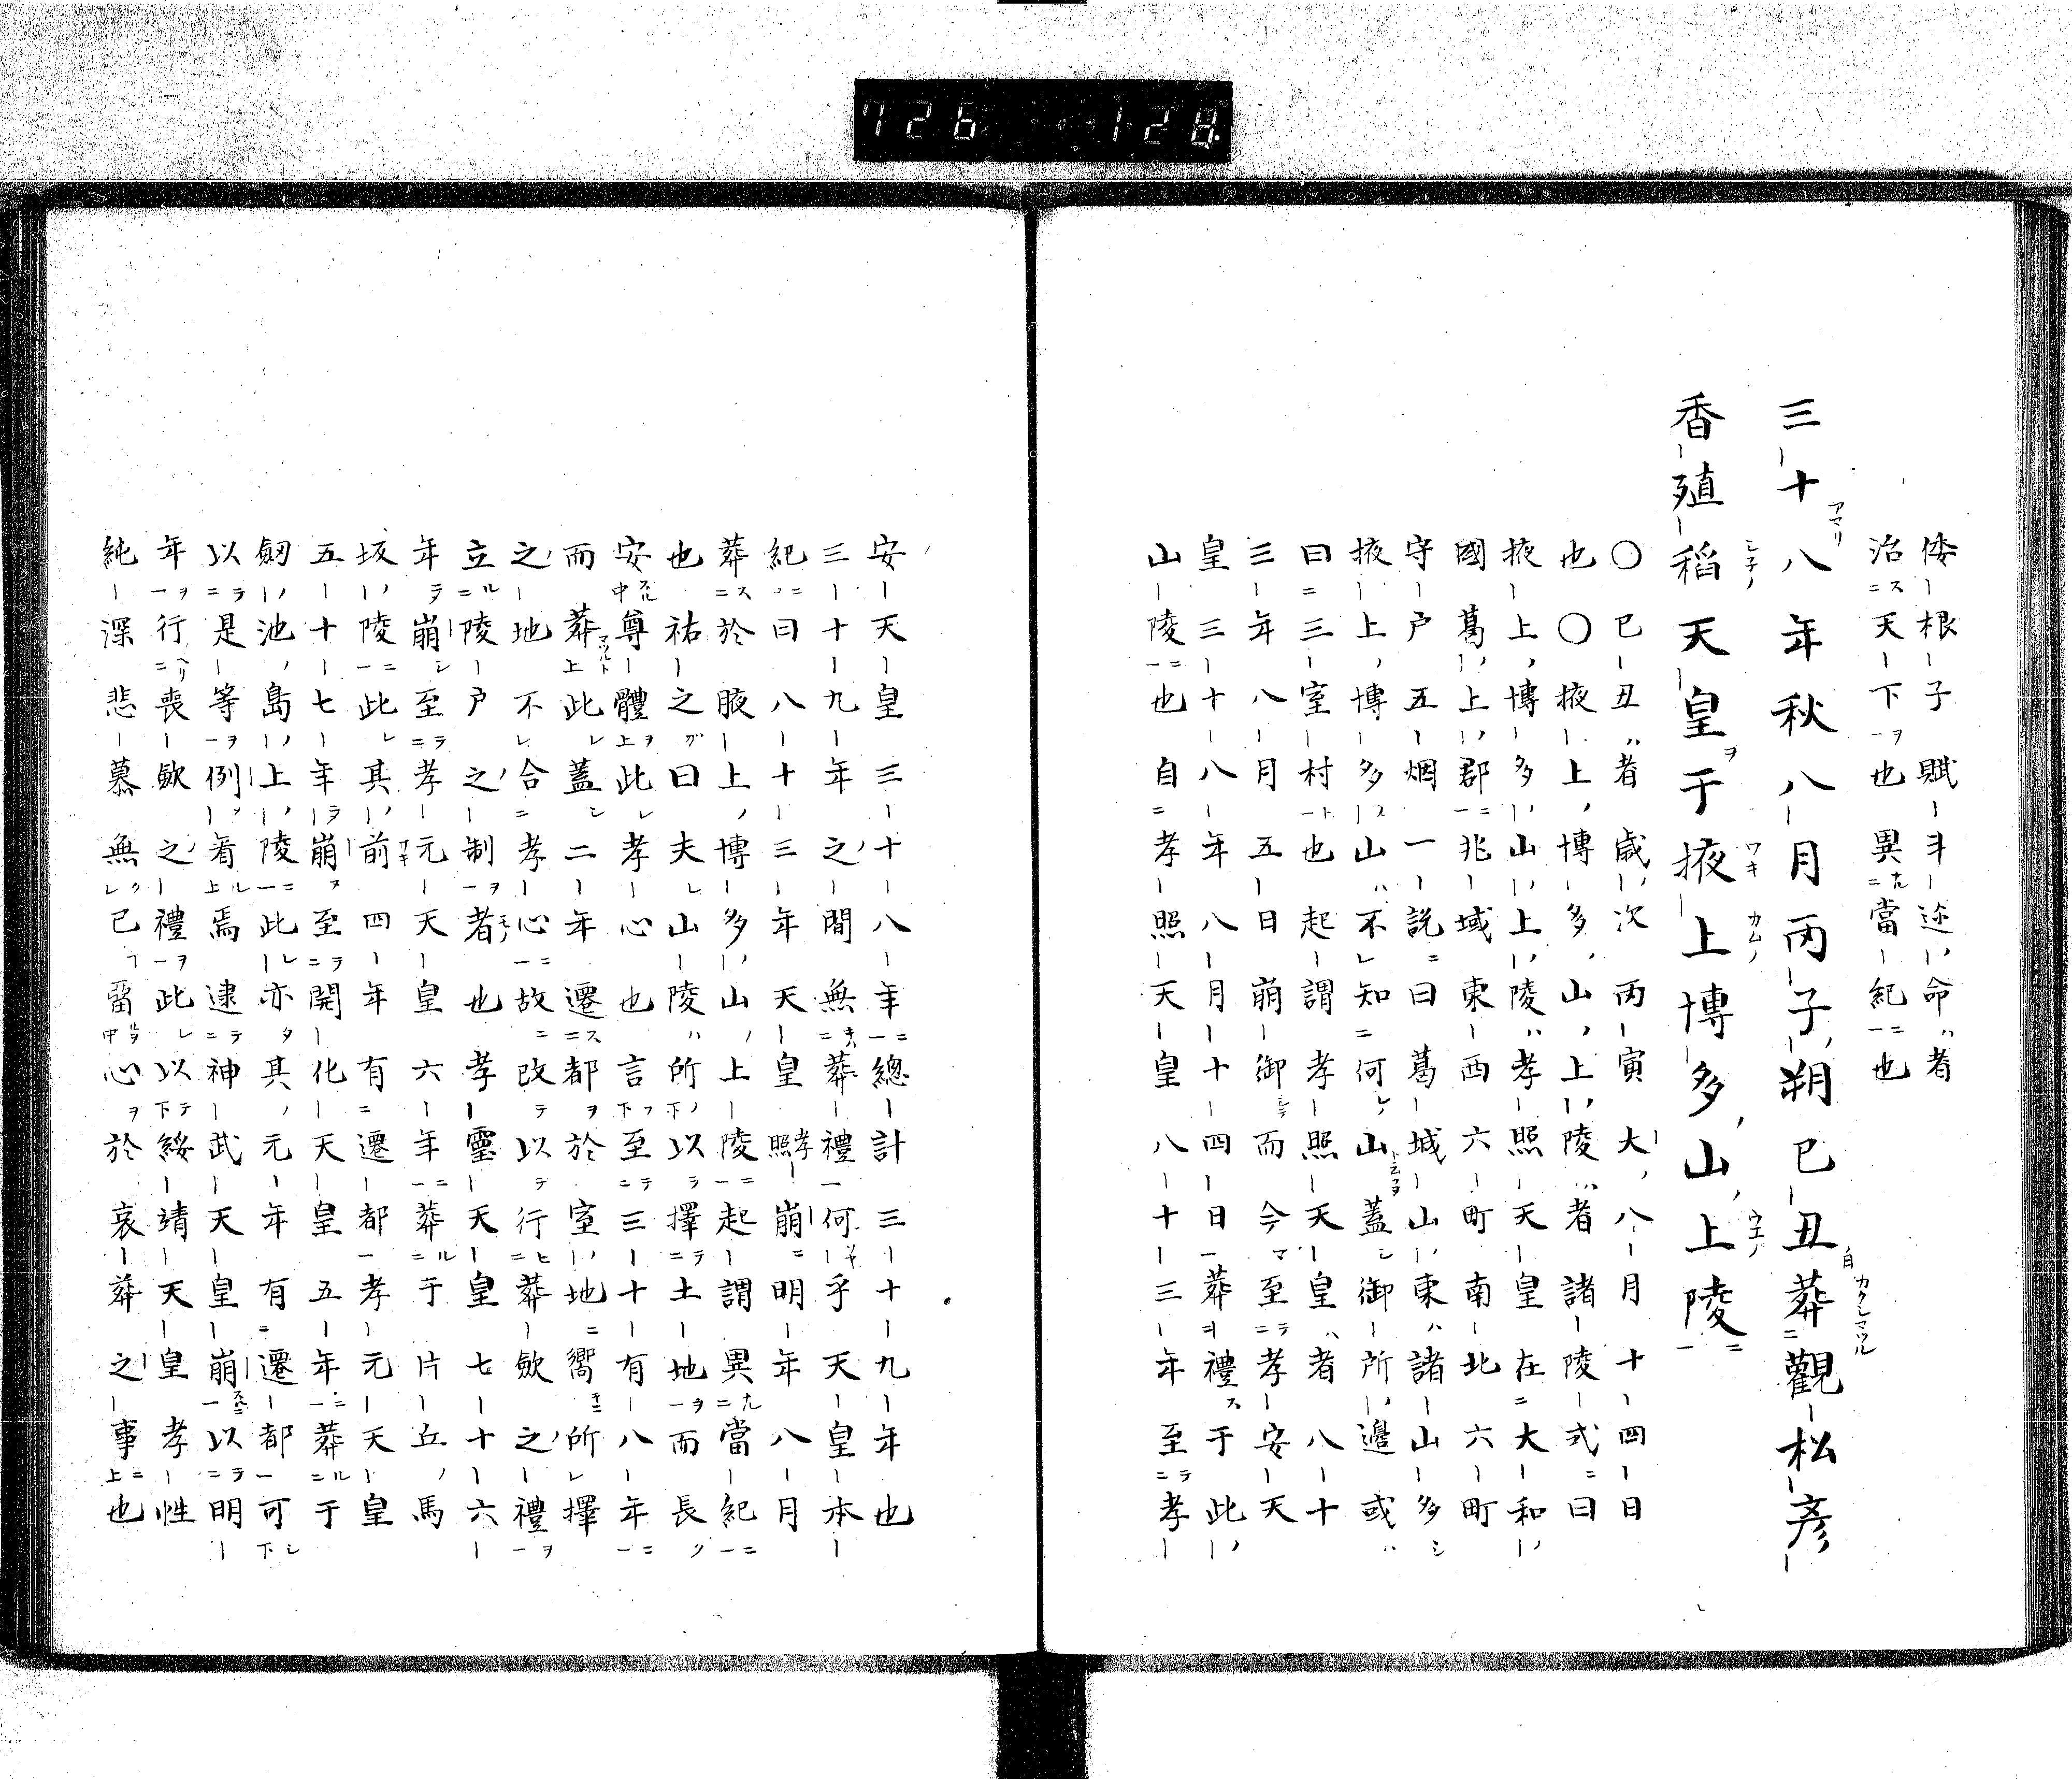 726 128
倭根子賦斗迩命者
治天下也異當紀也
三十八年秋八月丙子朔己丑葬觀松彥
香殖稻天皇于掖上博多山上陵
〇巳丑者歲次丙寅大八月十四日
也〇掖上博多山上陵者諸陵式曰
掖上博多山上陵孝照天皇在大和
國葛上郡兆域東西六町南北六町
守戶五烟一說曰葛城山東諸山多
掖上博多山不知何山蓋御所邊或
曰三室村也起謂孝照天皇者八十
三年八月五日崩御而今至孝安天
皇三十八年八月十四日葬禮于此
山陵也自孝照天皇八十三年至孝
安天皇三十八年總計三十九年也
三十九年之間無葬禮何乎天皇本
紀曰八十三年天皇孝照崩明年八月
葬於腋上博多山上陵起謂異當紀
也祐之曰夫山陵所以擇土地而長
安尊體此孝心也言至三十有八年
而葬此蓋二年遷都於室地嚮所擇
之地不合孝心故改以行葬斂之禮
立陵戶之制者也孝靈天皇七十六
年崩至孝元天皇六年葬于片丘馬
坂陵此其前四年有遷都孝元天皇
五十七年崩至開化天皇五年葬于
劔池島上陵此亦其元年有遷都可
以是等例看焉逮神武天皇崩以明
年行喪斂之禮此以綏靖天皇孝性
純深悲慕無已留心於哀葬之事也